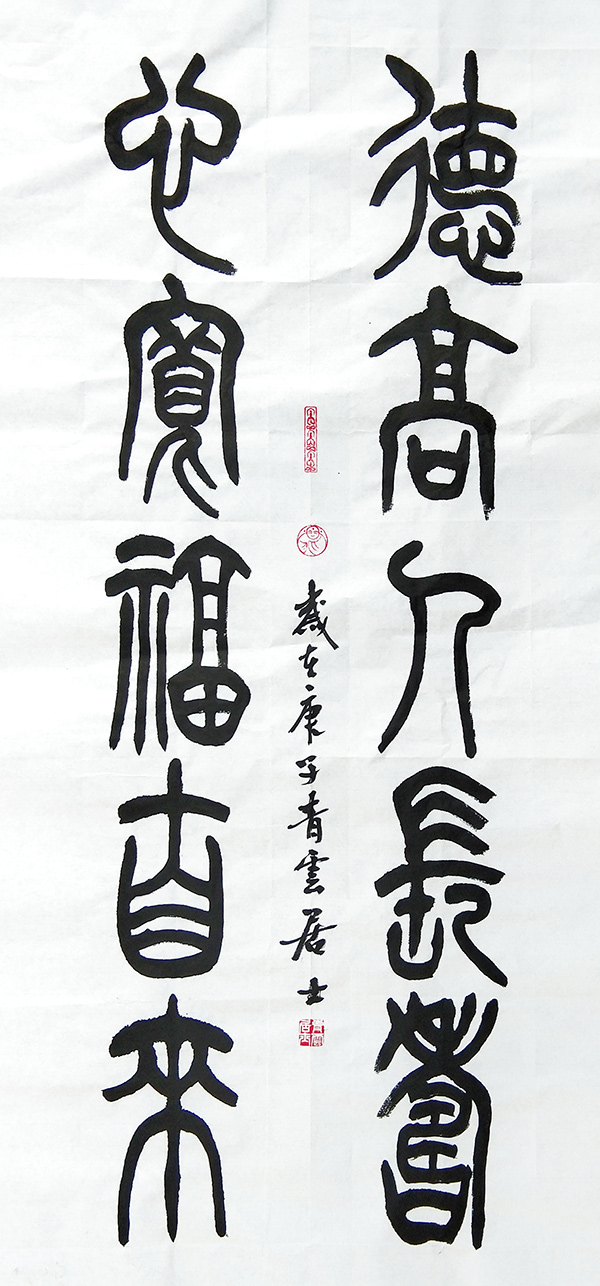 德高人長壽
心寬福自來
歲在庚子青雲居士